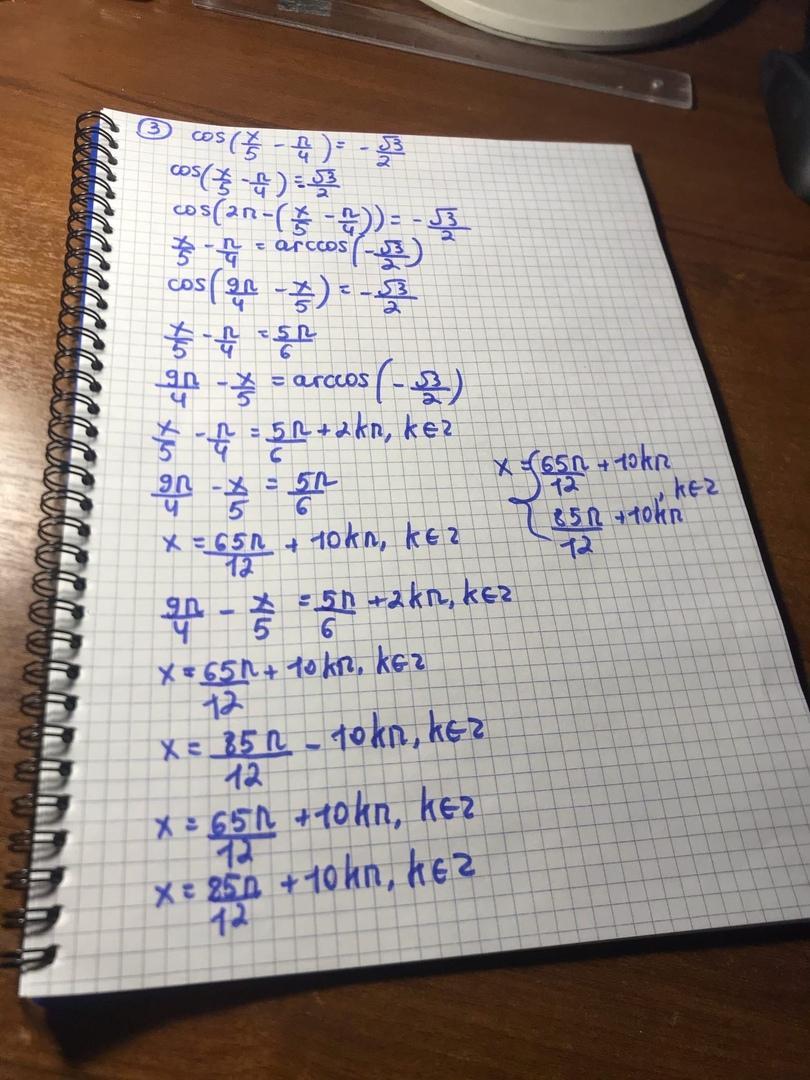 ③ cos(x/5 - π/4) = -√3/2
cos(x/5 - π/4) = √3/2
cos(2π - (x/5 - π/4)) = -√3/2
x/5 - π/4 = arccos(-√3/2)
cos(9π/4 - x/5) = -√3/2
x/5 - π/4 = 5π/6
9π/4 - x/5 = arccos(-√3/2)
x/5 - π/4 = 5π/6 + 2kπ, k∈Z
9π/4 - x/5 = 5π/6
x = 65π/12 + 10kπ, k∈Z
9π/4 - x/5 = 5π/6 + 2kπ, k∈Z
x = 65π/12 + 10kπ, k∈Z
x = 85π/12 - 10kπ, k∈Z
x = 65π/12 + 10kπ, k∈Z
x = 85π/12 + 10kπ, k∈Z
x = { 65π/12 + 10kπ
, k∈Z
85π/12 + 10kπ